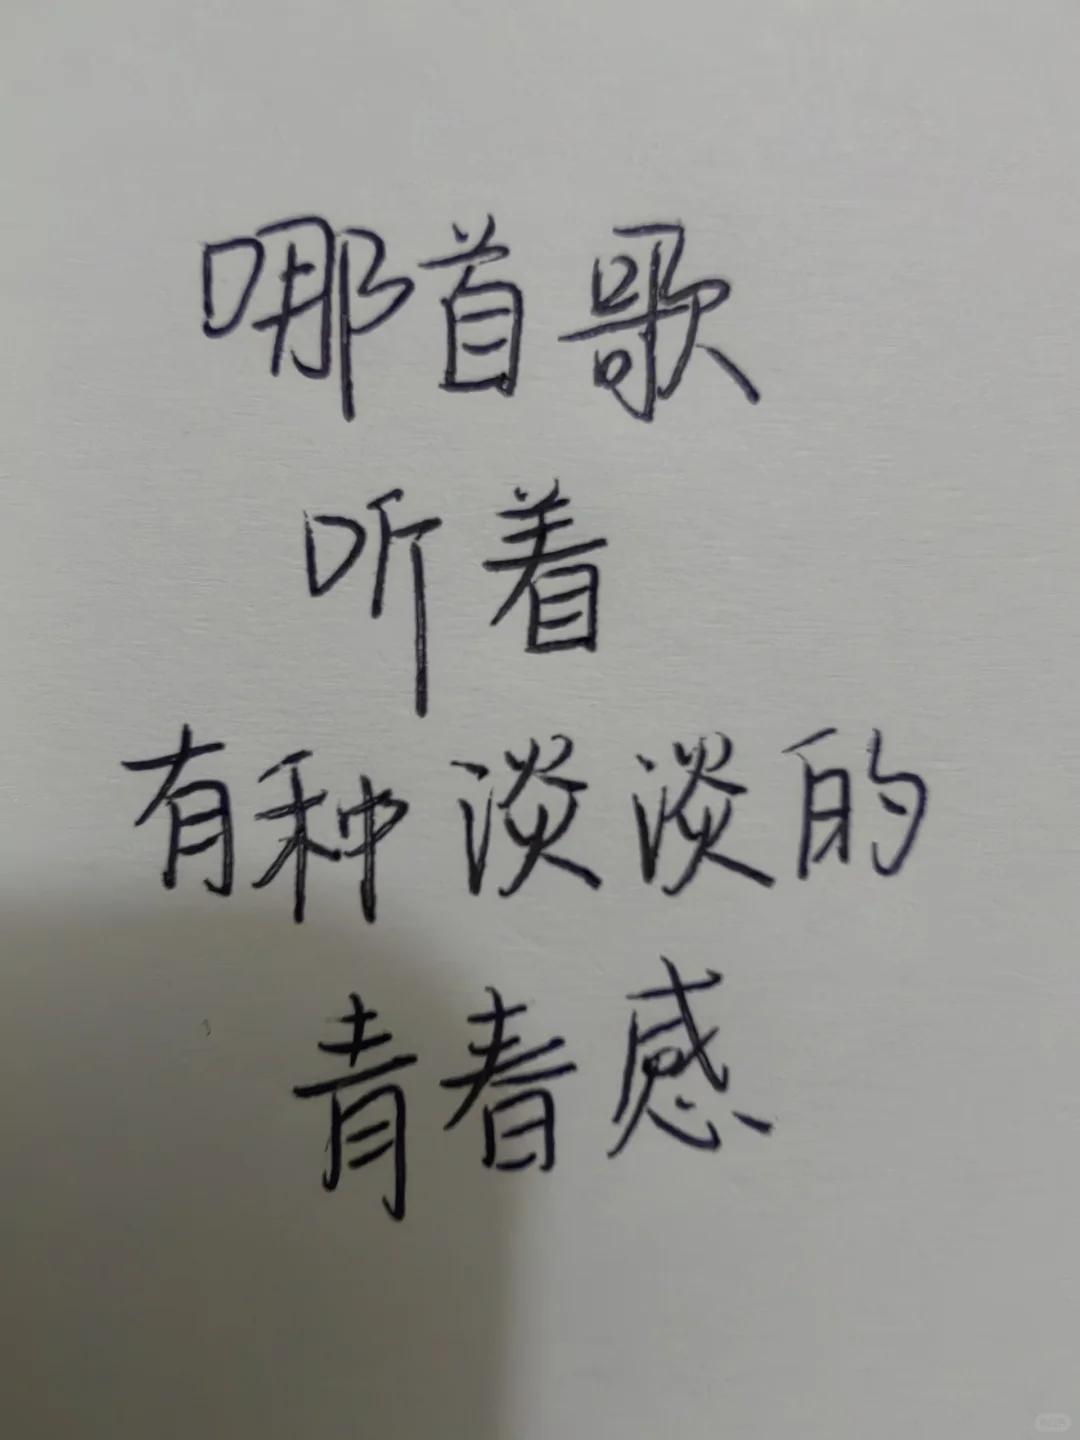 哪首歌
听着
有种淡淡的
青春感